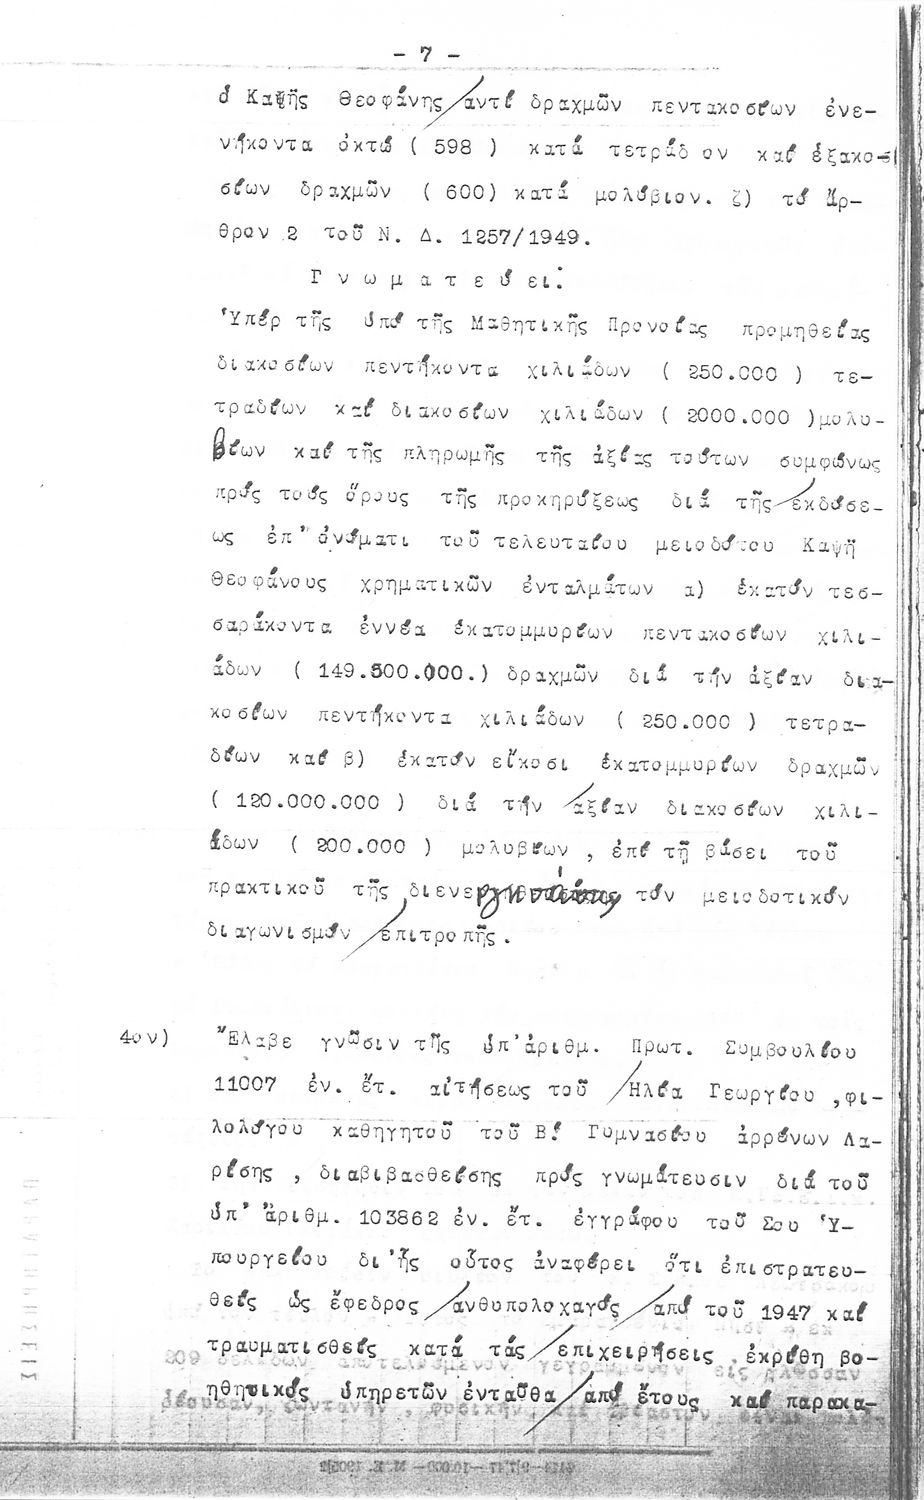 - 7 -
ὁ Καψῆς Θεοφάνης ἀντί δραχμῶν πεντακοσίων ἐνε-
νήκοντα ὀκτώ ( 598 ) κατά τετράδ ον καί ἑξακο-
σίων δραχμῶν ( 600) κατά μολύβιον. ζ) τό ἄρ-
θρον 2 τοῦ Ν. Δ. 1257/1949.
Γ ν ω μ α τ ε ύ ει:
Ὑπέρ τῆς ὑπό τῆς Μαθητικῆς Προνοίας προμηθείας
διακοσίων πεντήκοντα χιλιάδων ( 250.000 ) τε-
τραδίων καί διακοσίων χιλιάδων ( 2000.000 )μολυ-
βίων καί τῆς πληρωμῆς τῆς ἀξίας τούτων συμφώνως
πρός τούς ὅρους τῆς προκηρύξεως διά τῆς ἐκδόσε-
ως ἐπ' ὀνόματι τοῦ τελευταίου μειοδότου Καψῆ
Θεοφάνους χρηματικῶν ἐνταλμάτων α) ἑκατόν τεσ-
σαράκοντα ἐννέα ἑκατομμυρίων πεντακοσίων χιλι-
άδων ( 149.500.000.) δραχμῶν διά τήν ἀξίαν δια-
κοσίων πεντήκοντα χιλιάδων ( 250.000 ) τετρα-
δίων καί β) ἑκατόν εἴκοσι ἑκατομμυρίων δραχμῶν
( 120.000.000 ) διά τήν ἀξίαν διακοσίων χιλι-
άδων ( 200.000 ) μολυβίων , ἐπί τῇ βάσει τοῦ
πρακτικοῦ τῆς διενεργησάσης τόν μειοδοτικόν
διαγωνισμόν ἐπιτροπῆς.
4ον) Ἔλαβε γνῶσιν τῆς ὑπ'ἀριθμ. Πρωτ. Συμβουλίου
11007 ἐν. ἔτ. αἰτήσεως τοῦ Ἠλία Γεωργίου ,φι-
λολόγου καθηγητοῦ τοῦ Β! Γυμνασίου ἀρρένων Λα-
ρίσης , διαβιβασθείσης πρός γνωμάτευσιν διά τοῦ
ὑπ' ἀριθμ. 103862 ἐν. ἔτ. ἐγγράφου τοῦ Σου Ὑ-
πουργείου δι'ἧς οὗτος ἀναφέρει ὅτι ἐπιστρατευ-
θείς ὡς ἔφεδρος ἀνθυπολοχαγός ἀπό τοῦ 1947 καί
τραυματισθείς κατά τάς ἐπιχειρήσεις ἐκρίθη βο-
ηθητικός ὑπηρετῶν ἐνταῦθα ἀπό ἔτους καί παρακα-